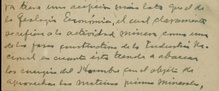 tro tres un aspecto más lato que el de
la Geología Económica, el cual claramente
se refiere a la actividad minera como una
de las fases constructivas de la Industria Na-
cional en cuanto ésta tiende a abarcar
las energías del Hombre en el objeto de
aprovechar las materias primas minerales,